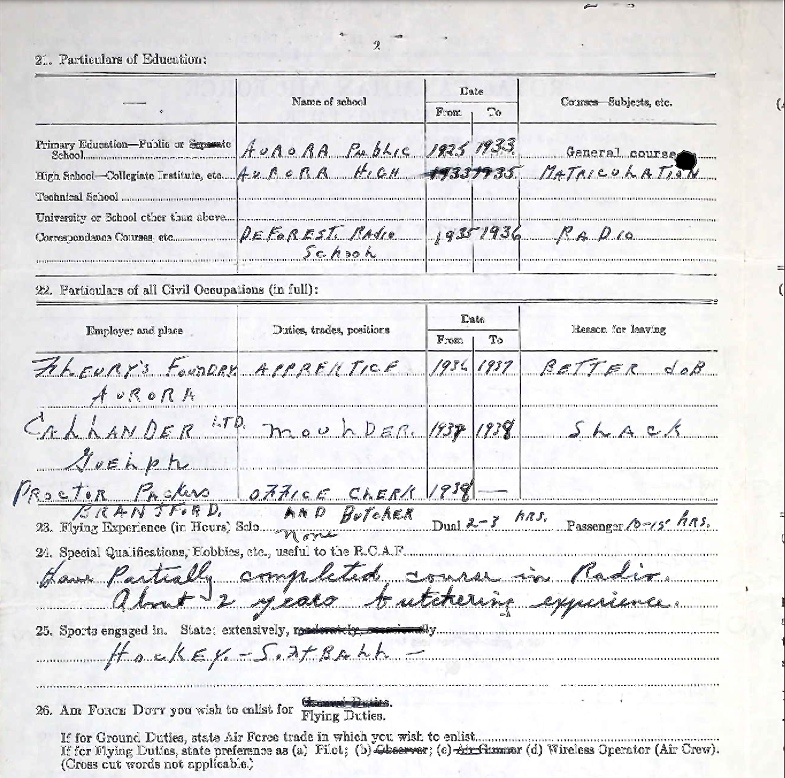 2
21. Particulars of Education:
Name of school Date Courses—Subjects, etc.
From To
Primary Education—Public or Separate
School AURORA PUBLIC 1925 1933 General course
High School—Collegiate Institute, etc. AURORA HIGH 1933 1935 MATRICULATION
Technical School
University or School other than above
Correspondence Courses, etc. DEFOREST RADIO 1935 1936 RADIO
SCHOOL
22. Particulars of all Civil Occupations (in full):
Employer and place Duties, trades, positions Date Reason for leaving
From To
FLEURY'S FOUNDRY APPRENTICE 1936 1937 BETTER JOB
AURORA
CALLANDER LTD. MOULDER. 1937 1938 SLACK
GUELPH
PROCTOR PACKERS OFFICE CLERK 1938 —
BRANTFORD. AND BUTCHER
23. Flying Experience (in Hours) Solo None Dual 2-3 HRS. Passenger 10-15 HRS.
24. Special Qualifications, Hobbies, etc., useful to the R.C.A.F.
Have Partially completed course in Radio.
About 2 years butchering experience.
25. Sports engaged in. State: extensively,
HOCKEY. – SOFTBALL –
26. AIR FORCE DUTY you wish to enlist for General Duties.
Flying Duties.
If for Ground Duties, state Air Force trade in which you wish to enlist
If for Flying Duties, state preference as (a) Pilot; (b) Observer; (c) Air Gunner (d) Wireless Operator (Air Crew).
(Cross out words not applicable.)